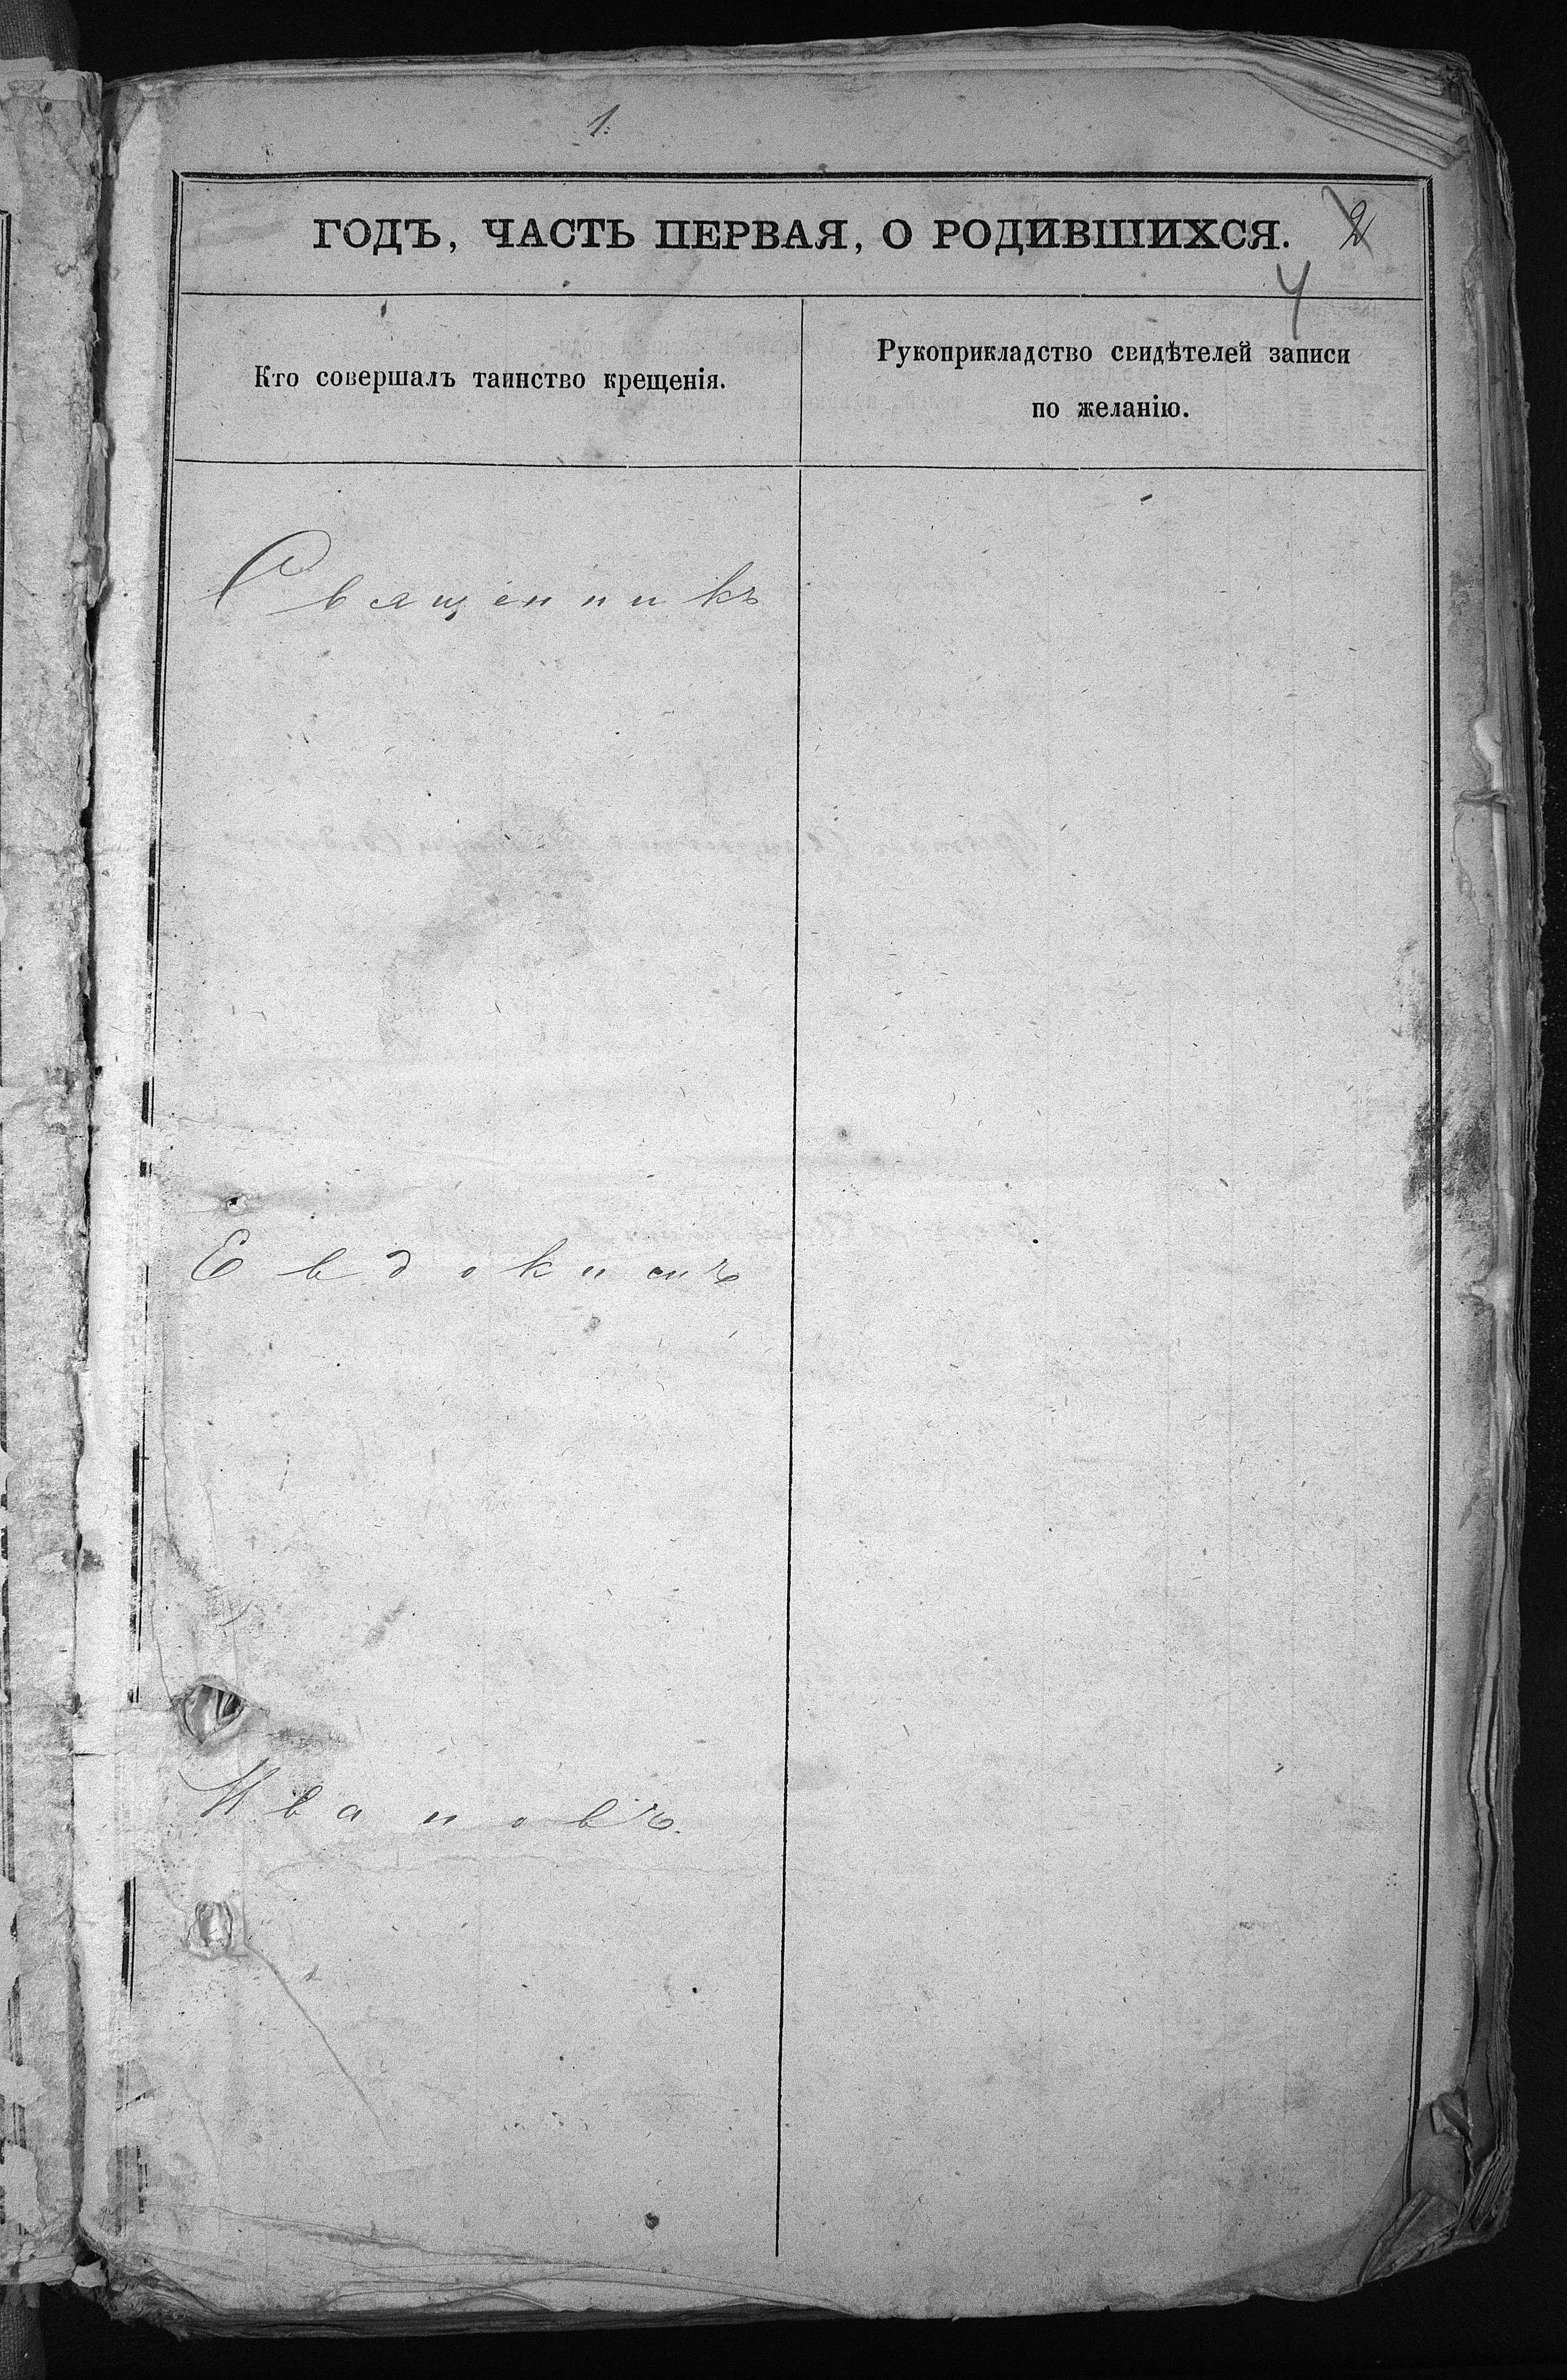 1.
ГОДЪ, ЧАСТЬ ПЕРВАЯ, О РОДИВШИХСЯ. 2
4
Кто совершалъ таинство крещенія.
Рукоприкладство свидѣтелей записи
по желанію.
Священникъ
Евдокимъ
Ивановъ.